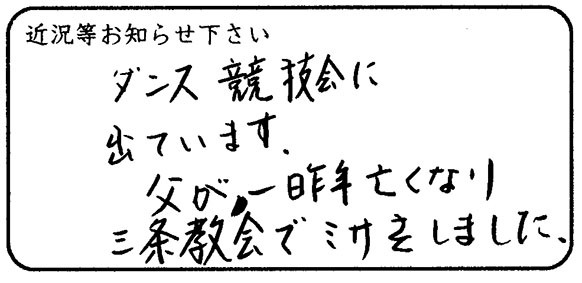 近況等お知らせ下さい
ダンス競技会に
出ています.
父が、一昨年亡くなり
三条教会でミサをしました.